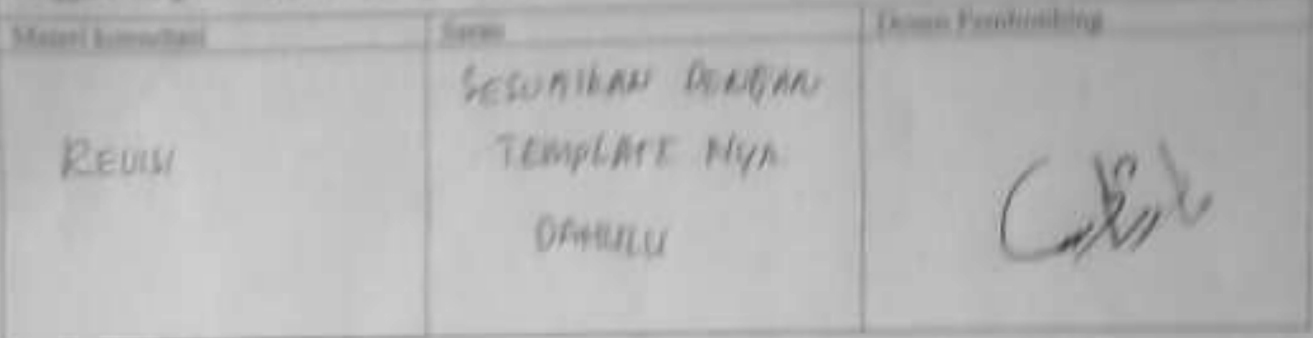 Materi konsultasi
Saran
Dosen Pembimbing
SESUAIKAN DENGAN
REVIEW
TEMPLATE NYA
DAHULU